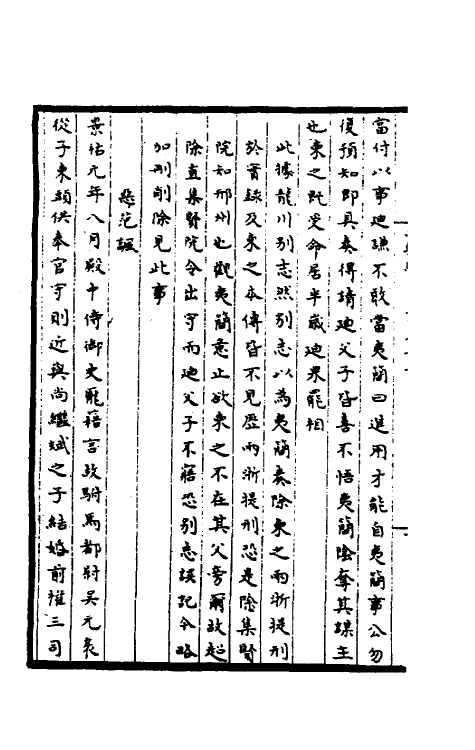 當付以事迪謙不敢當夷簡曰進用才能自夷簡事公勿
復預知即具奏得請迪父子皆喜不悟夷簡陰奪其謀主
也柬之既受命居半歲迪果罷相
此據龍川别志然别志以為夷簡奏除柬之兩浙提刑
於實錄及柬之本傳皆不見歷兩浙提刑恐是除集賢
院知邢州也觀夷簡意止欲柬之不在其父旁爾故超
除直集賢院令出守而迪父子不寤恐别志誤記今略
加刑削除見此事
范諷
景祐元年八月殿中侍御史龎籍言故駙馬都尉吴元扆
從子東頭供奉官守則近與尚繼斌之子結婚前權三司